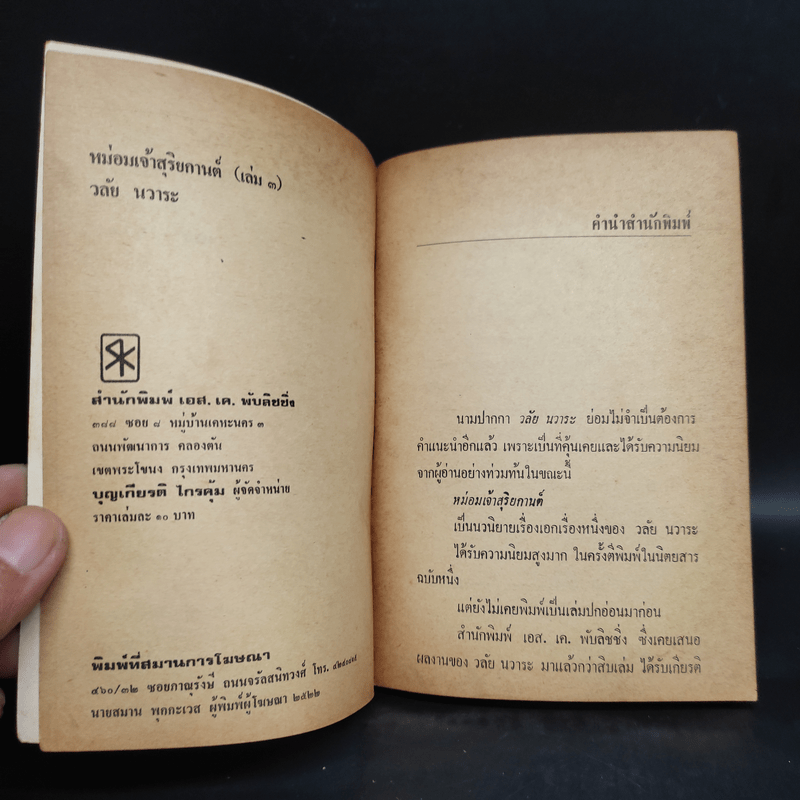 หม่อมเจ้าสุริยกานต์ (เล่ม ๓)
วลัย นวาระ
SK
สำนักพิมพ์ เอส. เค. พับลิชชิ่ง
๓๘๘ ซอย ๘ หมู่บ้านเคหะนคร ๓
ถนนพัฒนาการ คลองตัน
เขตพระโขนง กรุงเทพมหานคร
บุญเกียรติ ไกรคุ้ม ผู้จัดจำหน่าย
ราคาเล่มละ ๑๐ บาท
พิมพ์ที่สมานการโฆษณา
๔๖๐/๓๒ ซอยภาณุรังษี ถนนจรัลสนิทวงศ์ โทร.
นายสมาน พุกกะเวส ผู้พิมพ์ผู้โฆษณา ๒๕๒๒
คำนำสำนักพิมพ์
นามปากกา วลัย นวาระ ย่อมไม่จำเป็นต้องการ
คำแนะนำอีกแล้ว เพราะเป็นที่คุ้นเคยและได้รับความนิยม
จากผู้อ่านอย่างท่วมท้นในขณะนี้
หม่อมเจ้าสุริยกานต์
เป็นนวนิยายเรื่องเอกเรื่องหนึ่งของ วลัย นวาระ
ได้รับความนิยมสูงมาก ในครั้งตีพิมพ์ในนิตยสาร
ฉบับหนึ่ง
แต่ยังไม่เคยพิมพ์เป็นเล่มปกอ่อนมาก่อน
สำนักพิมพ์ เอส. เค. พับลิชชิ่ง ซึ่งเคยเสนอ
ผลงานของ วลัย นวาระ มาแล้วกว่าสิบเล่ม ได้รับเกียรติ